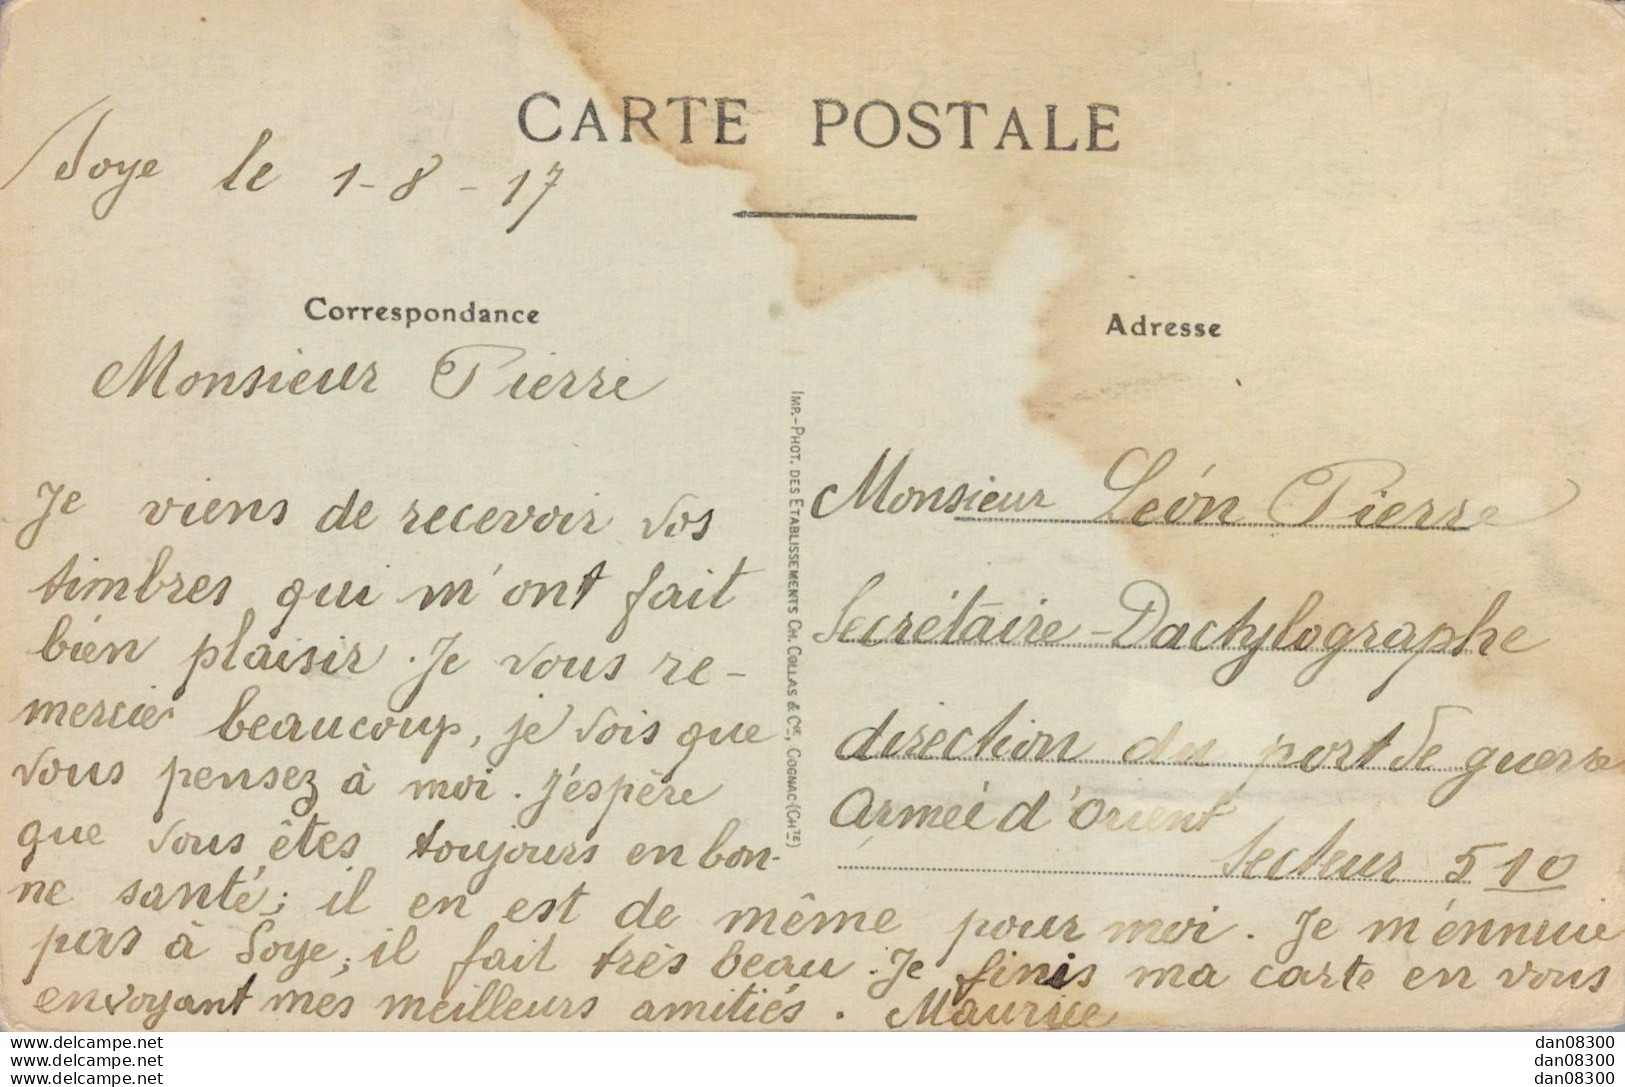 CARTE POSTALE
Soye le 1-8-17
Correspondance
Monsieur Pierre
Je viens de recevoir vos
timbres qui m'ont fait
bien plaisir. Je vous re-
mercie beaucoup, je vois que
vous pensez à moi. J'éspère
que vous êtes toujours en bon-
ne santé; il en est de même pour moi. Je m'ennuie
pas à Soye; il fait très beau. Je finis ma carte en vous
envoyant mes meilleurs amitiés. Maurice
IMP.-PHOT. DES ETABLISSEMENTS CH. COLLAS & Cie, COGNAC (CHTE)
Adresse
Monsieur Léon Pierre
Secrétaire-Dactylographe
direction du port de guerre
Armée d'Orient
Secteur 510
www.delcampe.net dan08300
www.delcampe.net dan08300
www.delcampe.net dan08300